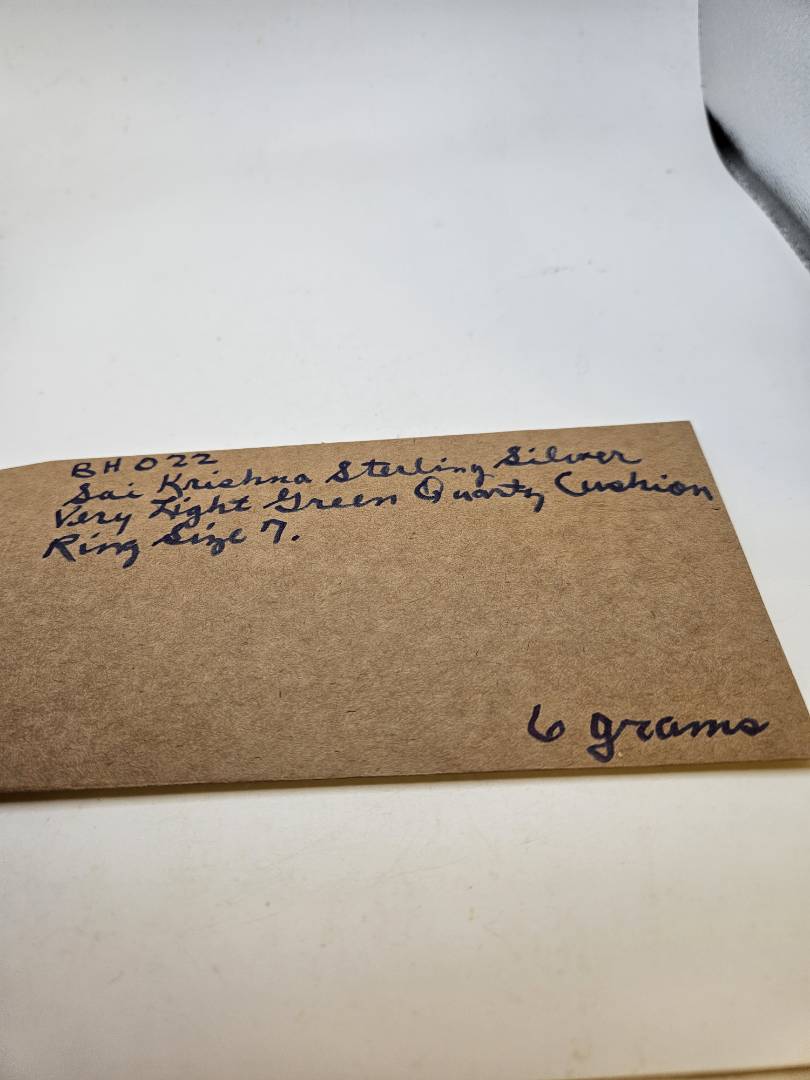 BH022
Sai Krishna Sterling Silver
Very Light Green Quartz Cushion
Ring Size 7.
6 grams